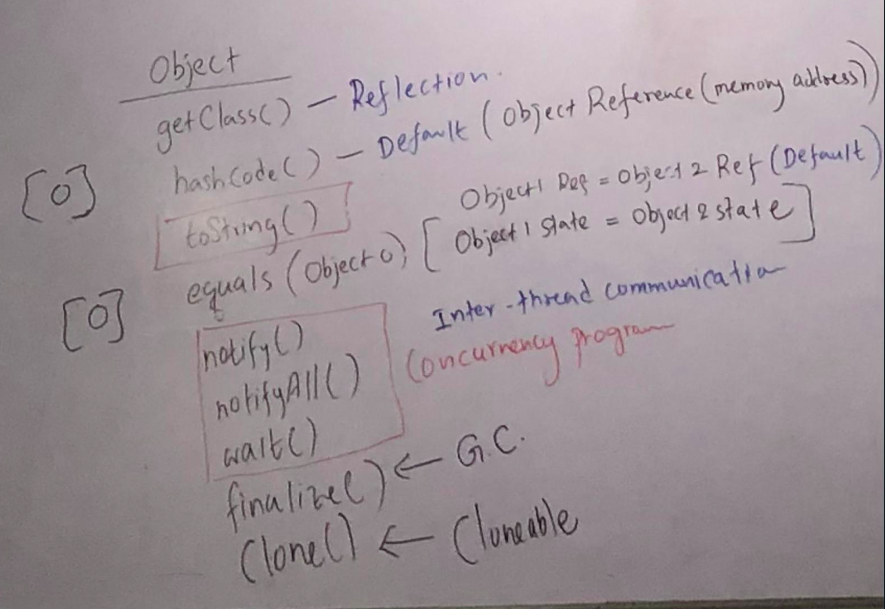 Object
getClass() — Reflection.
hashCode() — Default (Object Reference (memory address))
[O]
toString()
Object1 Ref = Object 2 Ref (Default)
equals (Object o) [Object 1 state = Object 2 state]
[O]
notify()
Inter-thread communication
notifyAll()
Concurrency program
wait()
finalize() ← G.C.
Clone() ← Cloneable